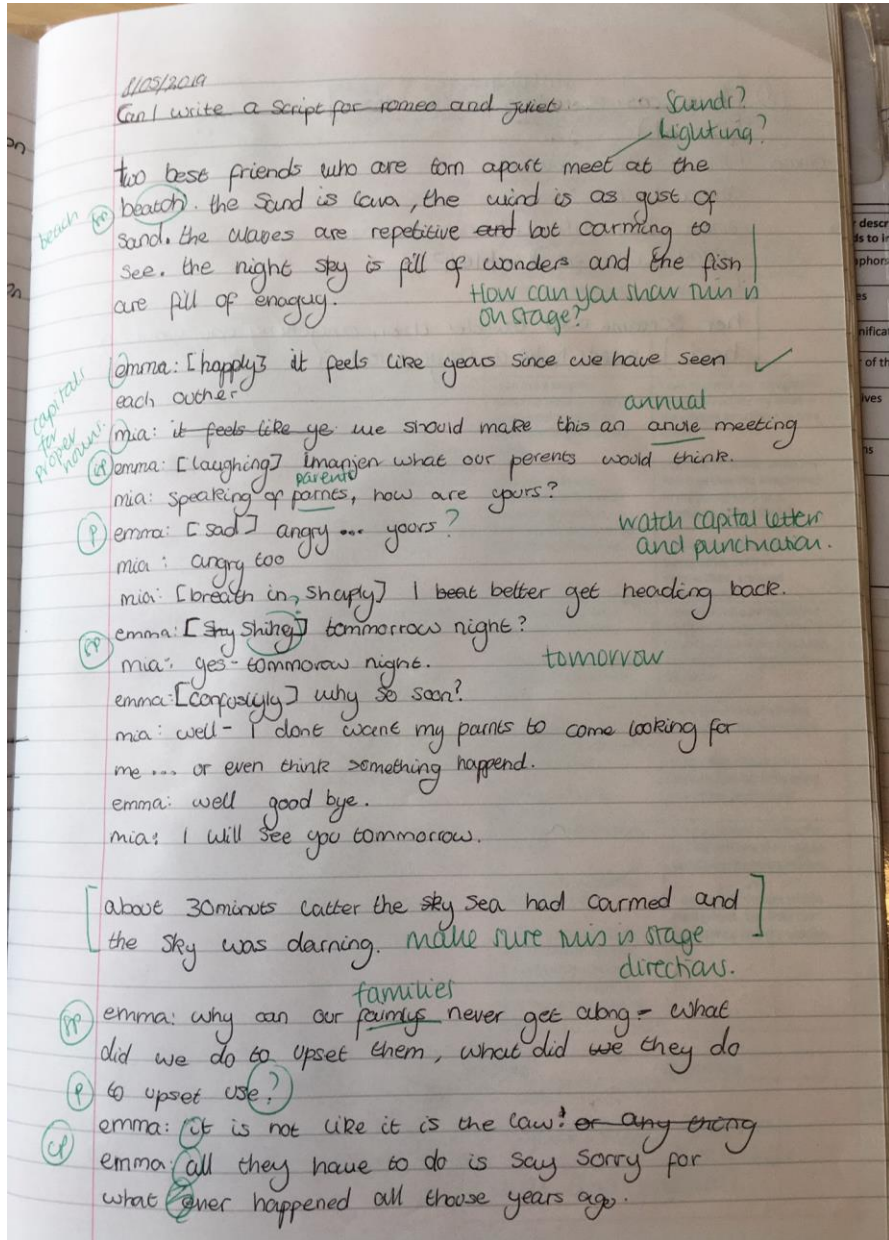 8/05/2019
Can I write a script for romeo and juiet
Sounds?
Lighting?
two best friends who are torn apart meet at the
beach sp beatch. the sand is lava, the wind is as gust of
sand. the waves are repetitive and but carming to
see. the night sky is fill of wonders and the fish
are fill of enaguy.
How can you show this is
on stage?
emma: [happly} it feels like years since we have seen
each outher
capitals
for
proper
nouns.
annual
mia: it feels like ye we should make this an anule meeting
sp emma: [laughing] imanjen what our perents would think.
parents
mia: speaking of parnts, how are yours?
p emma: [sad] angry... yours?
watch capital letters
and punctuation.
mia: angry too
mia: [breath in, shaply] I beat better get heading back.
sp emma: [shy shihg] tommorrow night?
mia: yes - tommorow night.
tomorrow
emma: [confusigly] why so soon?
mia: well - I dont want my parnts to come looking for
me ... or even think something happend.
emma: well good bye.
mia: I will see you tommorrow.
[about 30minuts latter the sky sea had carmed and
the sky was darning.]
make sure this is stage
directions.
families
sp emma: why can our faimlys never get along - what
did we do to upset them, what did we they do
p to upset use?
cp emma: it is not like it is the law! or any thing
emma: all they have to do is say sorry for
what ever happened all thoose years ago.
descr
ds to in
aphor
es
nifica
of th
ives
ns
on